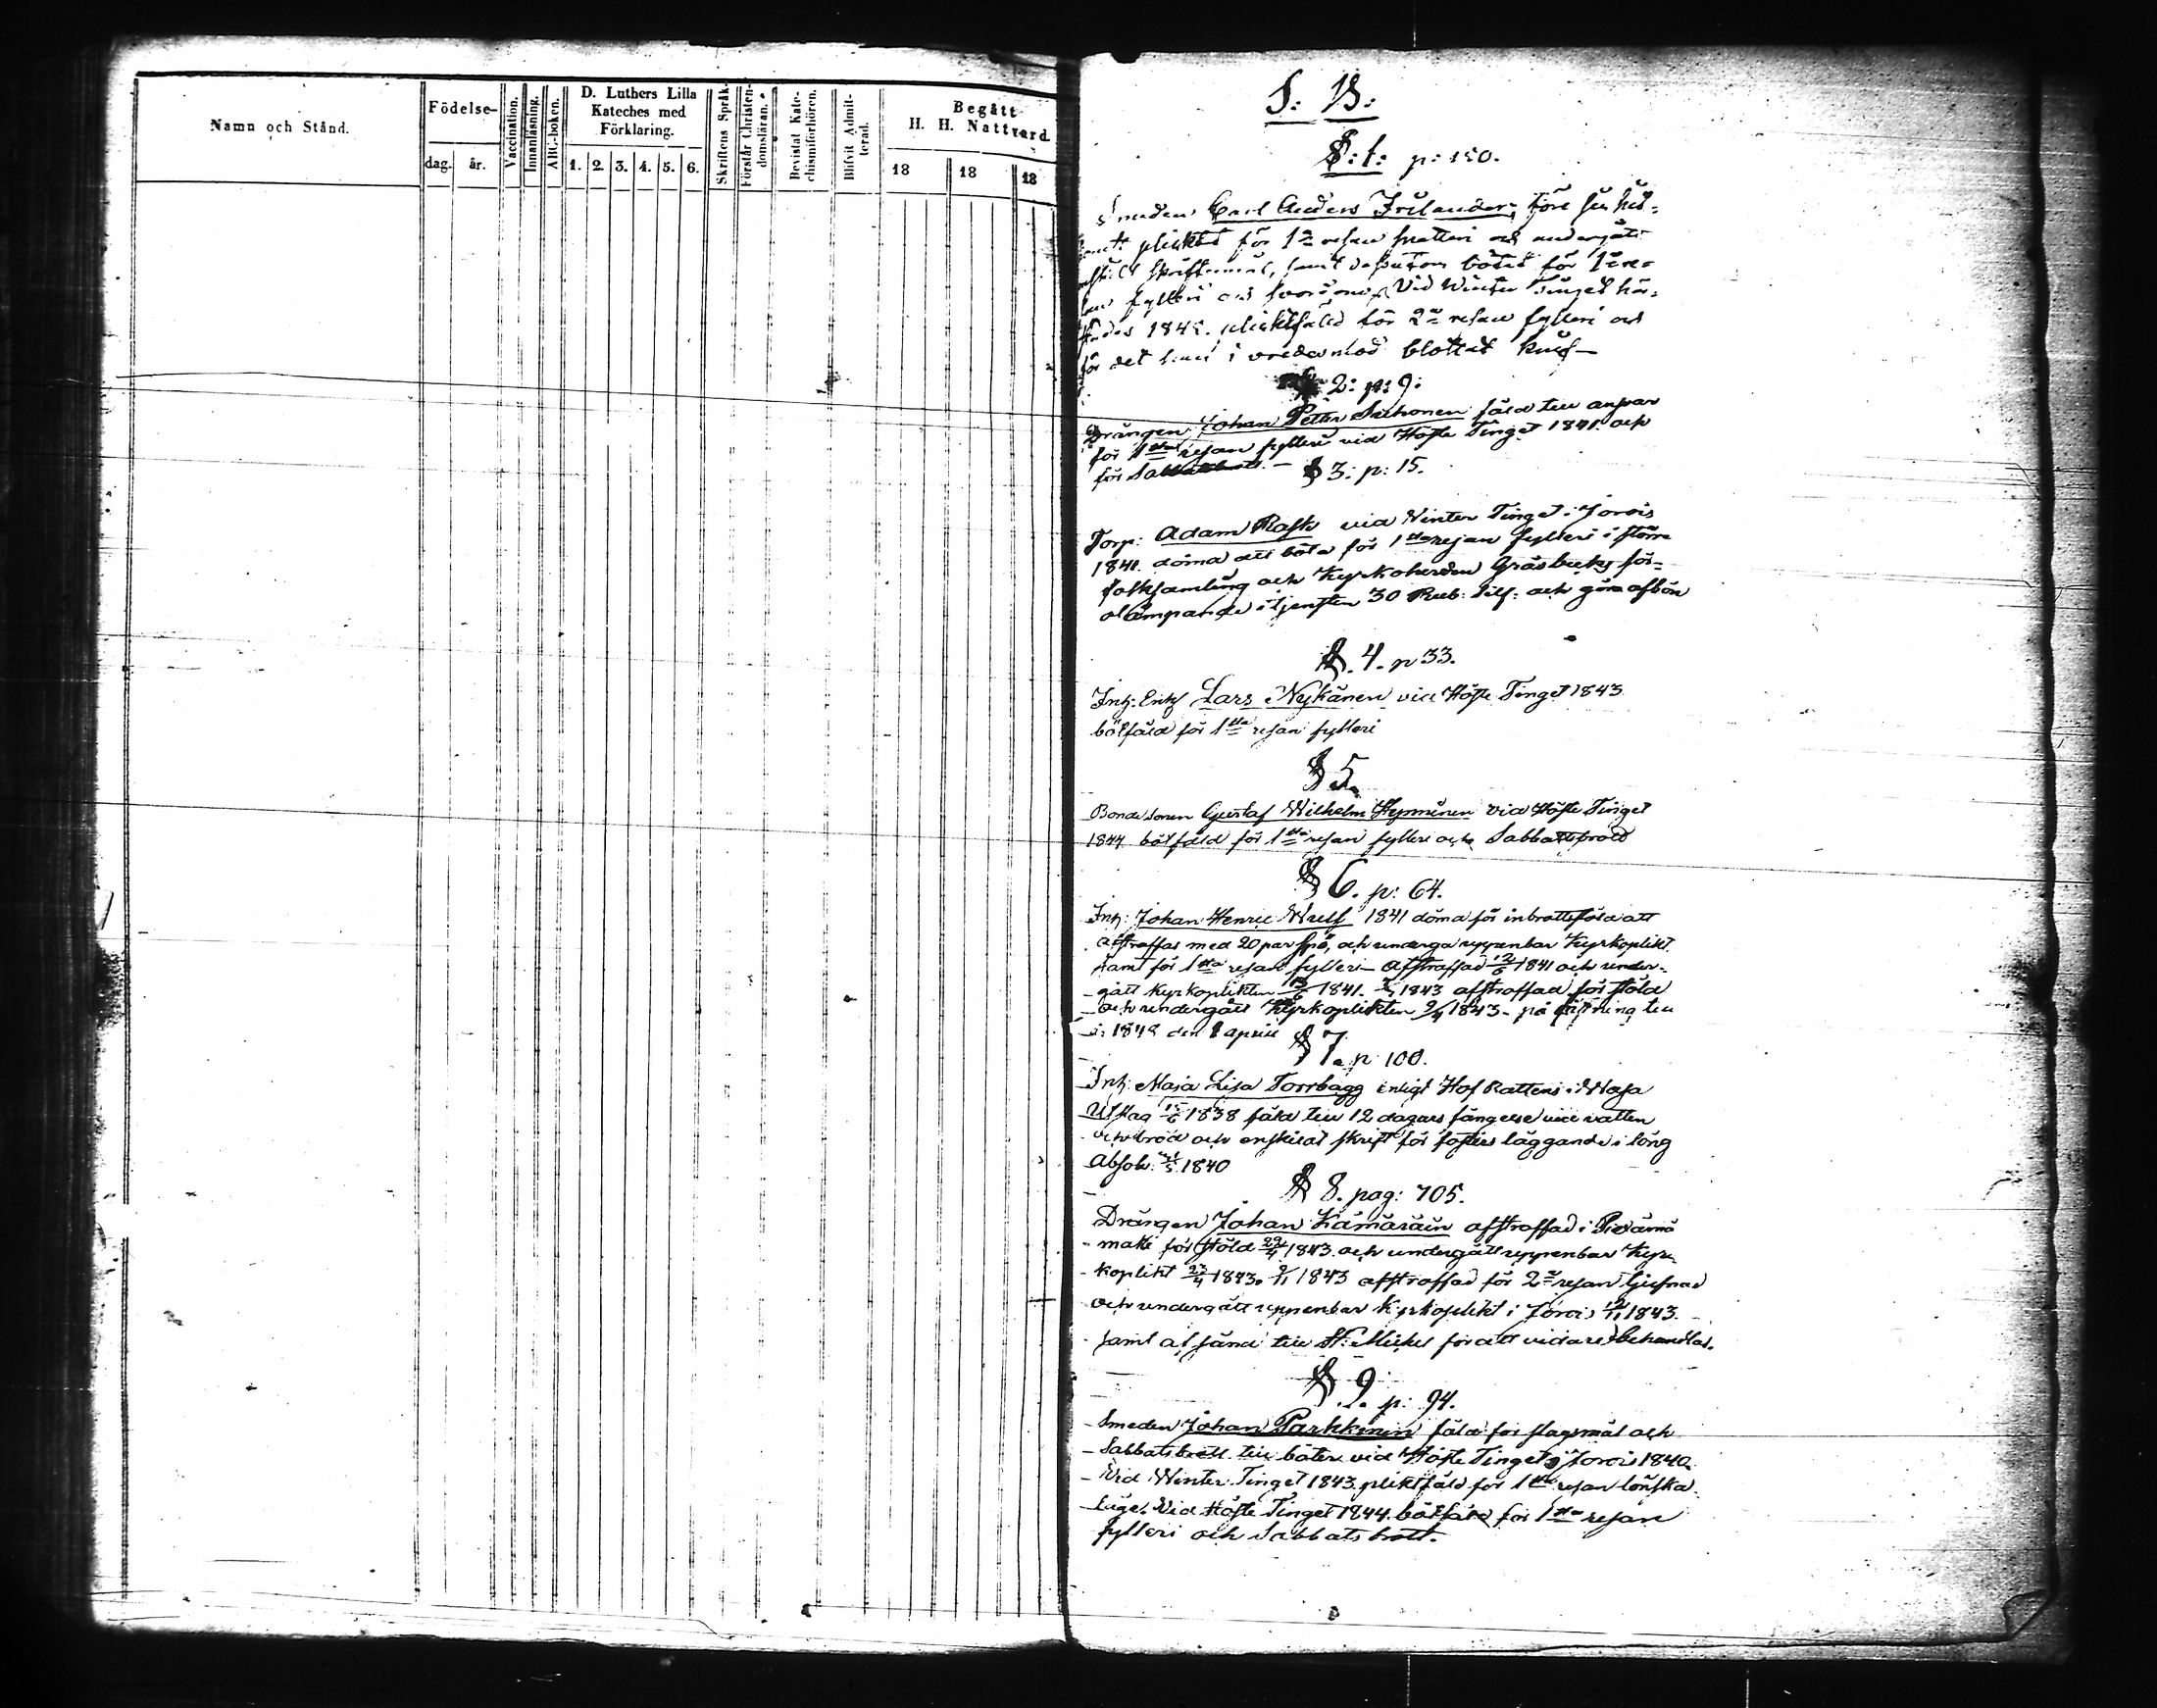 Namn och Stånd.
Födelse-
dag.
år.
Vaccination.
Innanläsning.
ABC-boken.
D. Luthers Lilla
Kateches med
Förklaring.
1. 2. 3. 4. 5. 6.
Skriftens Språk.
Förstår Christen-
domsläran.
Bevistat Kate-
chismiförhören.
Blifvit Admit-
terad.
Begått
H. H. Nattvard
18 18 18
S: B:
§: 1: p: 150.
Smeden Carl Anders Frilander, före sin hit-
plicktat för 1a resan snatteri och undergått
skriftemål, samt dessutom bötat för 1a re-
fylleri och svordom. Vid Winter Tinget här-
städes 1848. pliktfäld för 2a resan fylleri och
för det han i vredesmod blottat knif—
2: p: 9:
Drängen Johan Petter Suhonen fäld till ansvar
för 1sta resan fylleri vid Höste Tinget 1841. och
för Sabbatsbrott. — § 3: p: 15.
Torp: Adam Rask vid Winter Tinget i Jorois
1841. dömd att böta för 1sta resan fylleri i större
folksamling och Kyrkoherden Gråsbecks för-
olämpande i tjensten 30 Rub: Silf: och göra afbön
§. 4. p 33.
Inh: Enkf Lars Nykänen vid Höste Tinget 1843
bötfäld för 1sta resan fylleri
§ 5.
Bondesonen Gustaf Wilhelm Hynninen vid Höste Tinget
1844 bötfäld för 1sta resan fylleri och Sabbatsbrott
§ 6. p: 64.
Inh: Johan Henric Wulff 1841 dömd för inbrottsstöld att
afstraffas med 20 par Spö, och undergå uppenbar Kyrkoplikt
samt för 1sta resan fylleri – afstraffad 12/6 1841 och under-
gått Kyrkoplikten 13/6 1841. 1843 afstraffad för stöld
och undergått Kyrkoplikten 9/4 1843 – på fästning till
år 1848 den 8 april
§ 7. p: 100.
Inh: Maja Lisa Torrbagg enligt Hof Rättens i Wasa
Utslag 15/6 1838 fäld till 12 dagars fängelse vid vatten
och bröd och enskildt skrift för fosters läggande i lönd
Absolv: 1840
§ 8. pag: 105.
Drängen Johan Hämäläin afstraffad i
maki för stöld 22/4 1843. och undergått uppenbar Kyr-
koplikt 23/4 1843. 1843 afstraffad för 2a resan tjufnad
och undergått uppenbar Kyrkoplikt i Jorois 12/11 1843.
samt afsänd till St: Michel för att vidare behandlas.
§ 9. p: 94.
Smeden Johan Parkkinen fäld för slagsmål och
Sabbatsbrott till böter vid Höste Tinget i Jorois 1840.
Vid Winter Tinget 1843. pliktfäld för 1sta resan lönska-
läge. Vid Höste Tinget 1844. bötfäld för 1sta resan
fylleri och Sabbats brott.